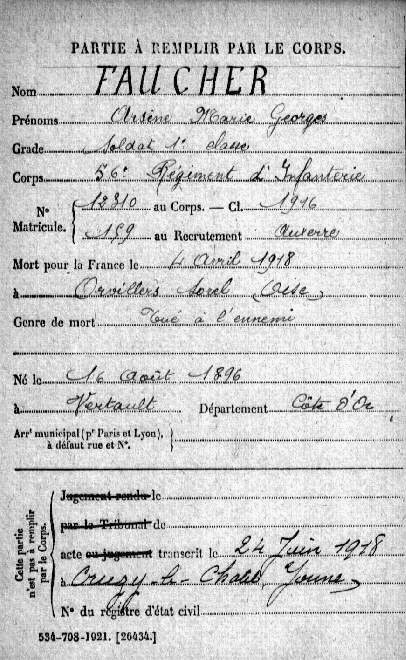 PARTIE À REMPLIR PAR LE CORPS.
Nom FAUCHER
Prénoms Arsène Marie Georges
Grade Soldat 1e classe
Corps 56e Régiment d'Infanterie
N° Matricule. 12810 au Corps. — Cl. 1916
159 au Recrutement Auxerre
Mort pour la France le 4 Avril 1918
à Orvillers Sorel (Oise)
Genre de mort Tué à l'ennemi
Né le 16 Août 1896
à Vertault Département Côte d'Or
Arrt municipal (pr Paris et Lyon),
à défaut rue et N°.
Cette partie n'est pas à remplir par le Corps.
Jugement rendu le
par le Tribunal de
acte ou jugement transcrit le 24 Juin 1918
à Cruzy-le-Chatel Yonne
N° du registre d'état civil
534-708-1921. [26434.]